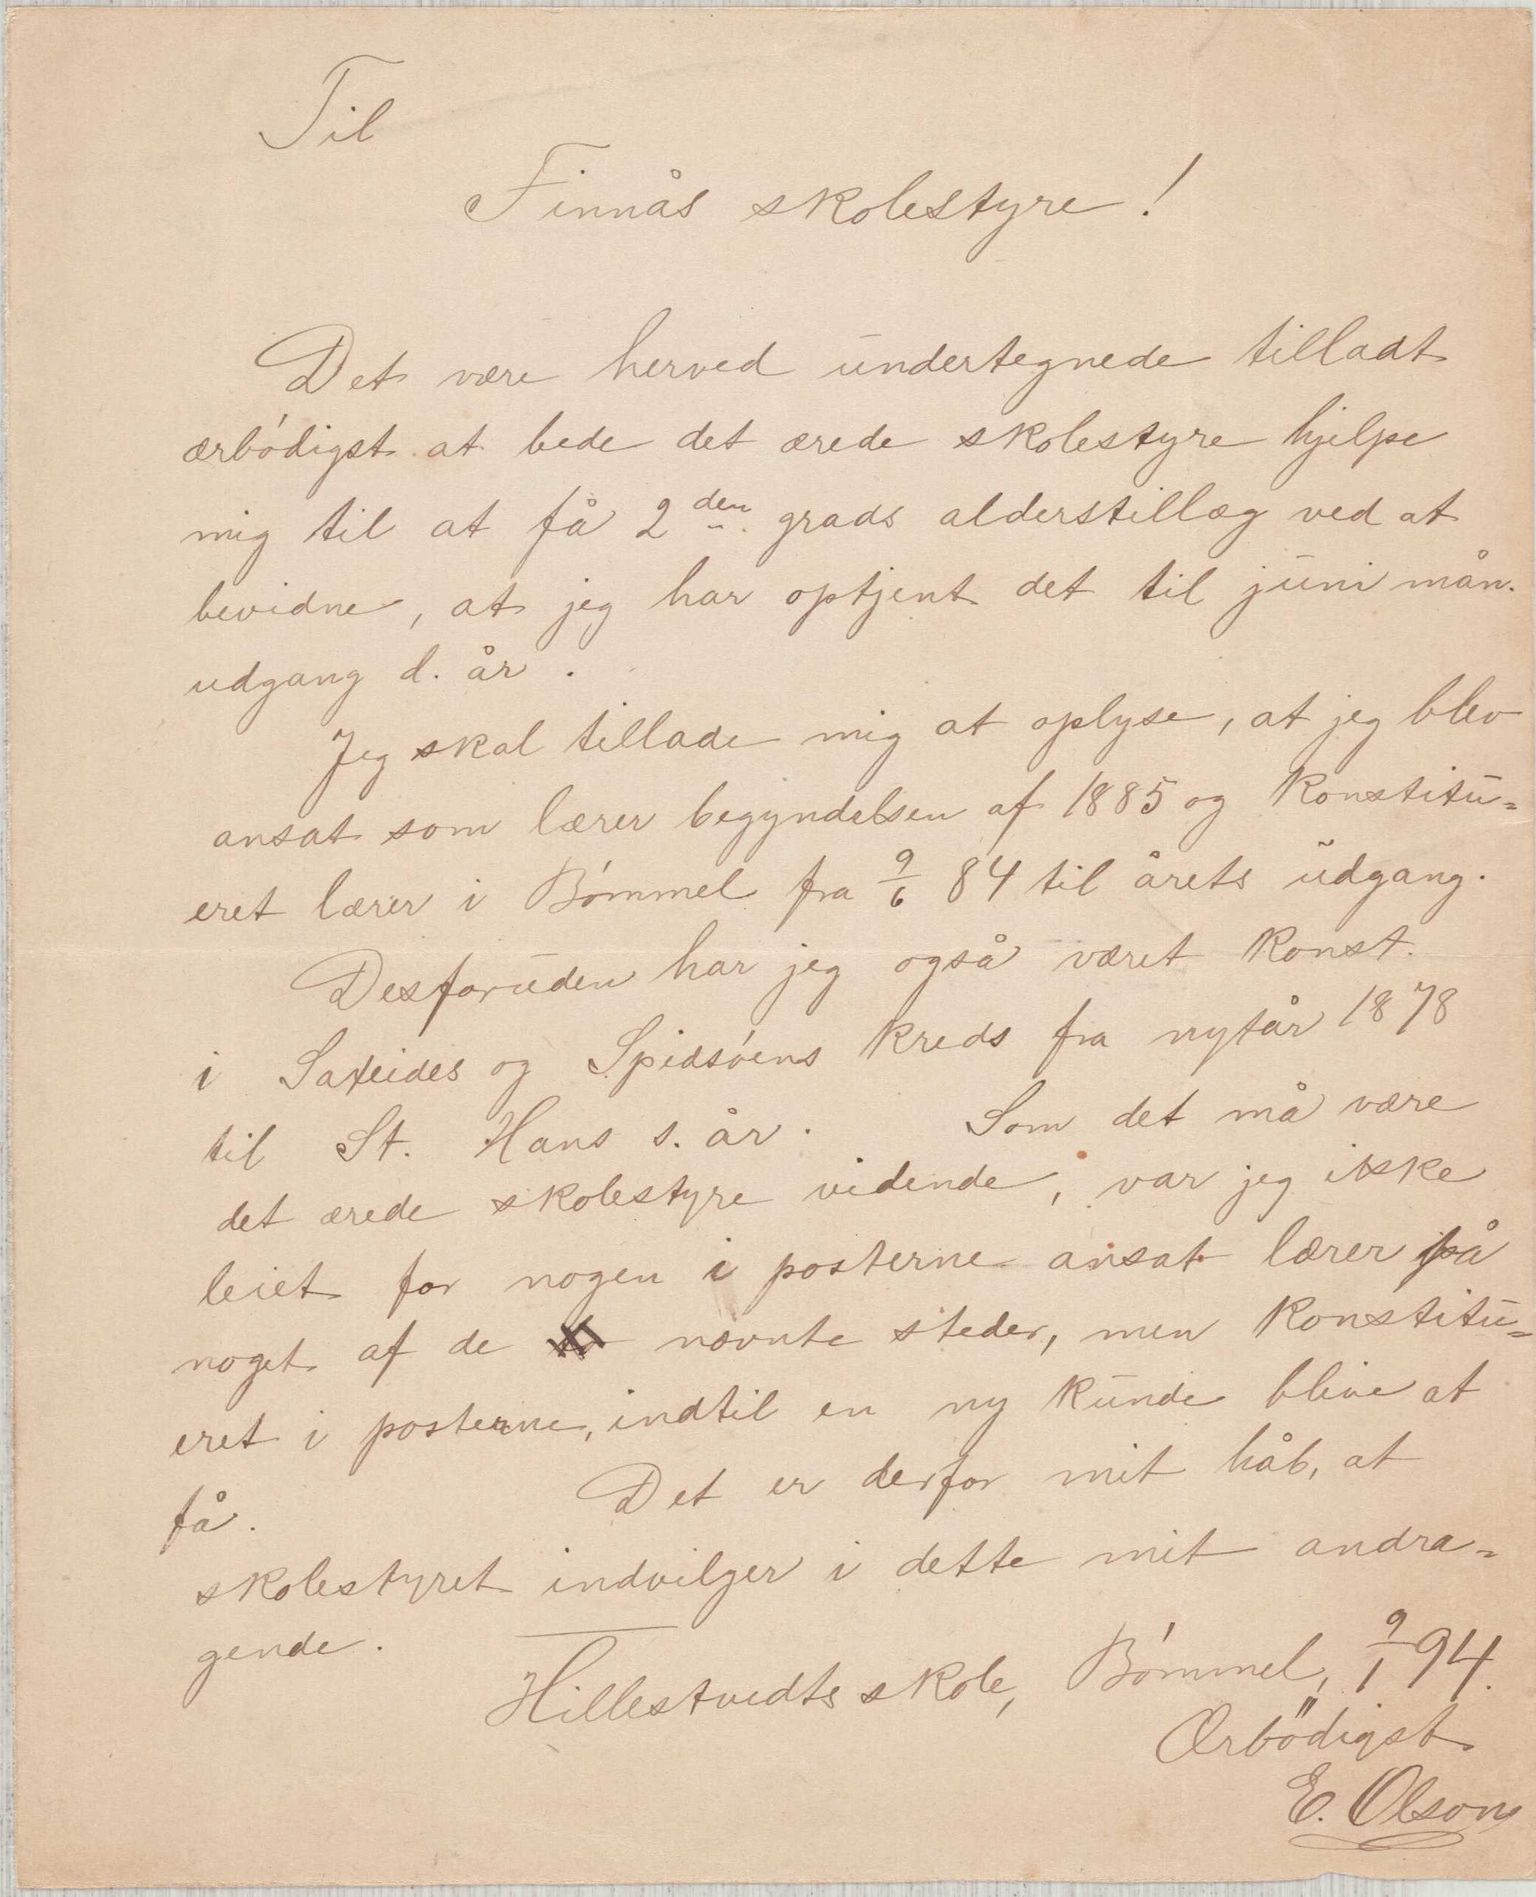 Til
Finnås skolestyre!
Det være herved undertegnede tilladt
ærbódigst at bede det ærede skolestyre hjelpe
mig til at få 2den grads alderstillæg ved at
bevidne, at jeg har optjent det til juni mån.
udgang d. år.
Jeg skal tillade mig at oplyse, at jeg blev
ansat som lærer begyndelsen af 1885 og konstitu=
eret lærer i Bómmel fra 9/6 84 til årets udgang.
Desforuden har jeg også været konst.
i og Spidsóens kreds fra nytår 1878
til St. Hans s. år. Som det må være
det ærede skolestyre vidende, var jeg ikke
leiet for nogen i posterne ansat lærer på
noget af de nævnte steder, men konstitu=
eret i posterne, indtil en ny kunde blive at
få. Det er derfor mit håb, at
skolestyret indvilger i dette mit andra=
gende.
Hillestvedts skole, Bómmel, 9/1 94.
Ærbödigst
E. Olson